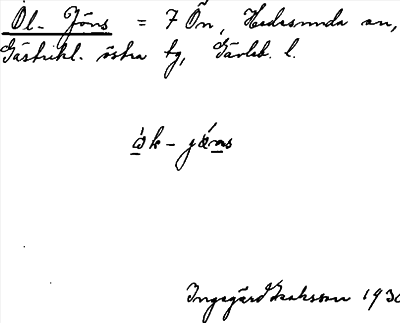 Ol- Jöns = 7 Ön, Hedesunda sn,
Gästrikl. östra tg, Gävleb. l.
Ingegärd Isaksson 1930